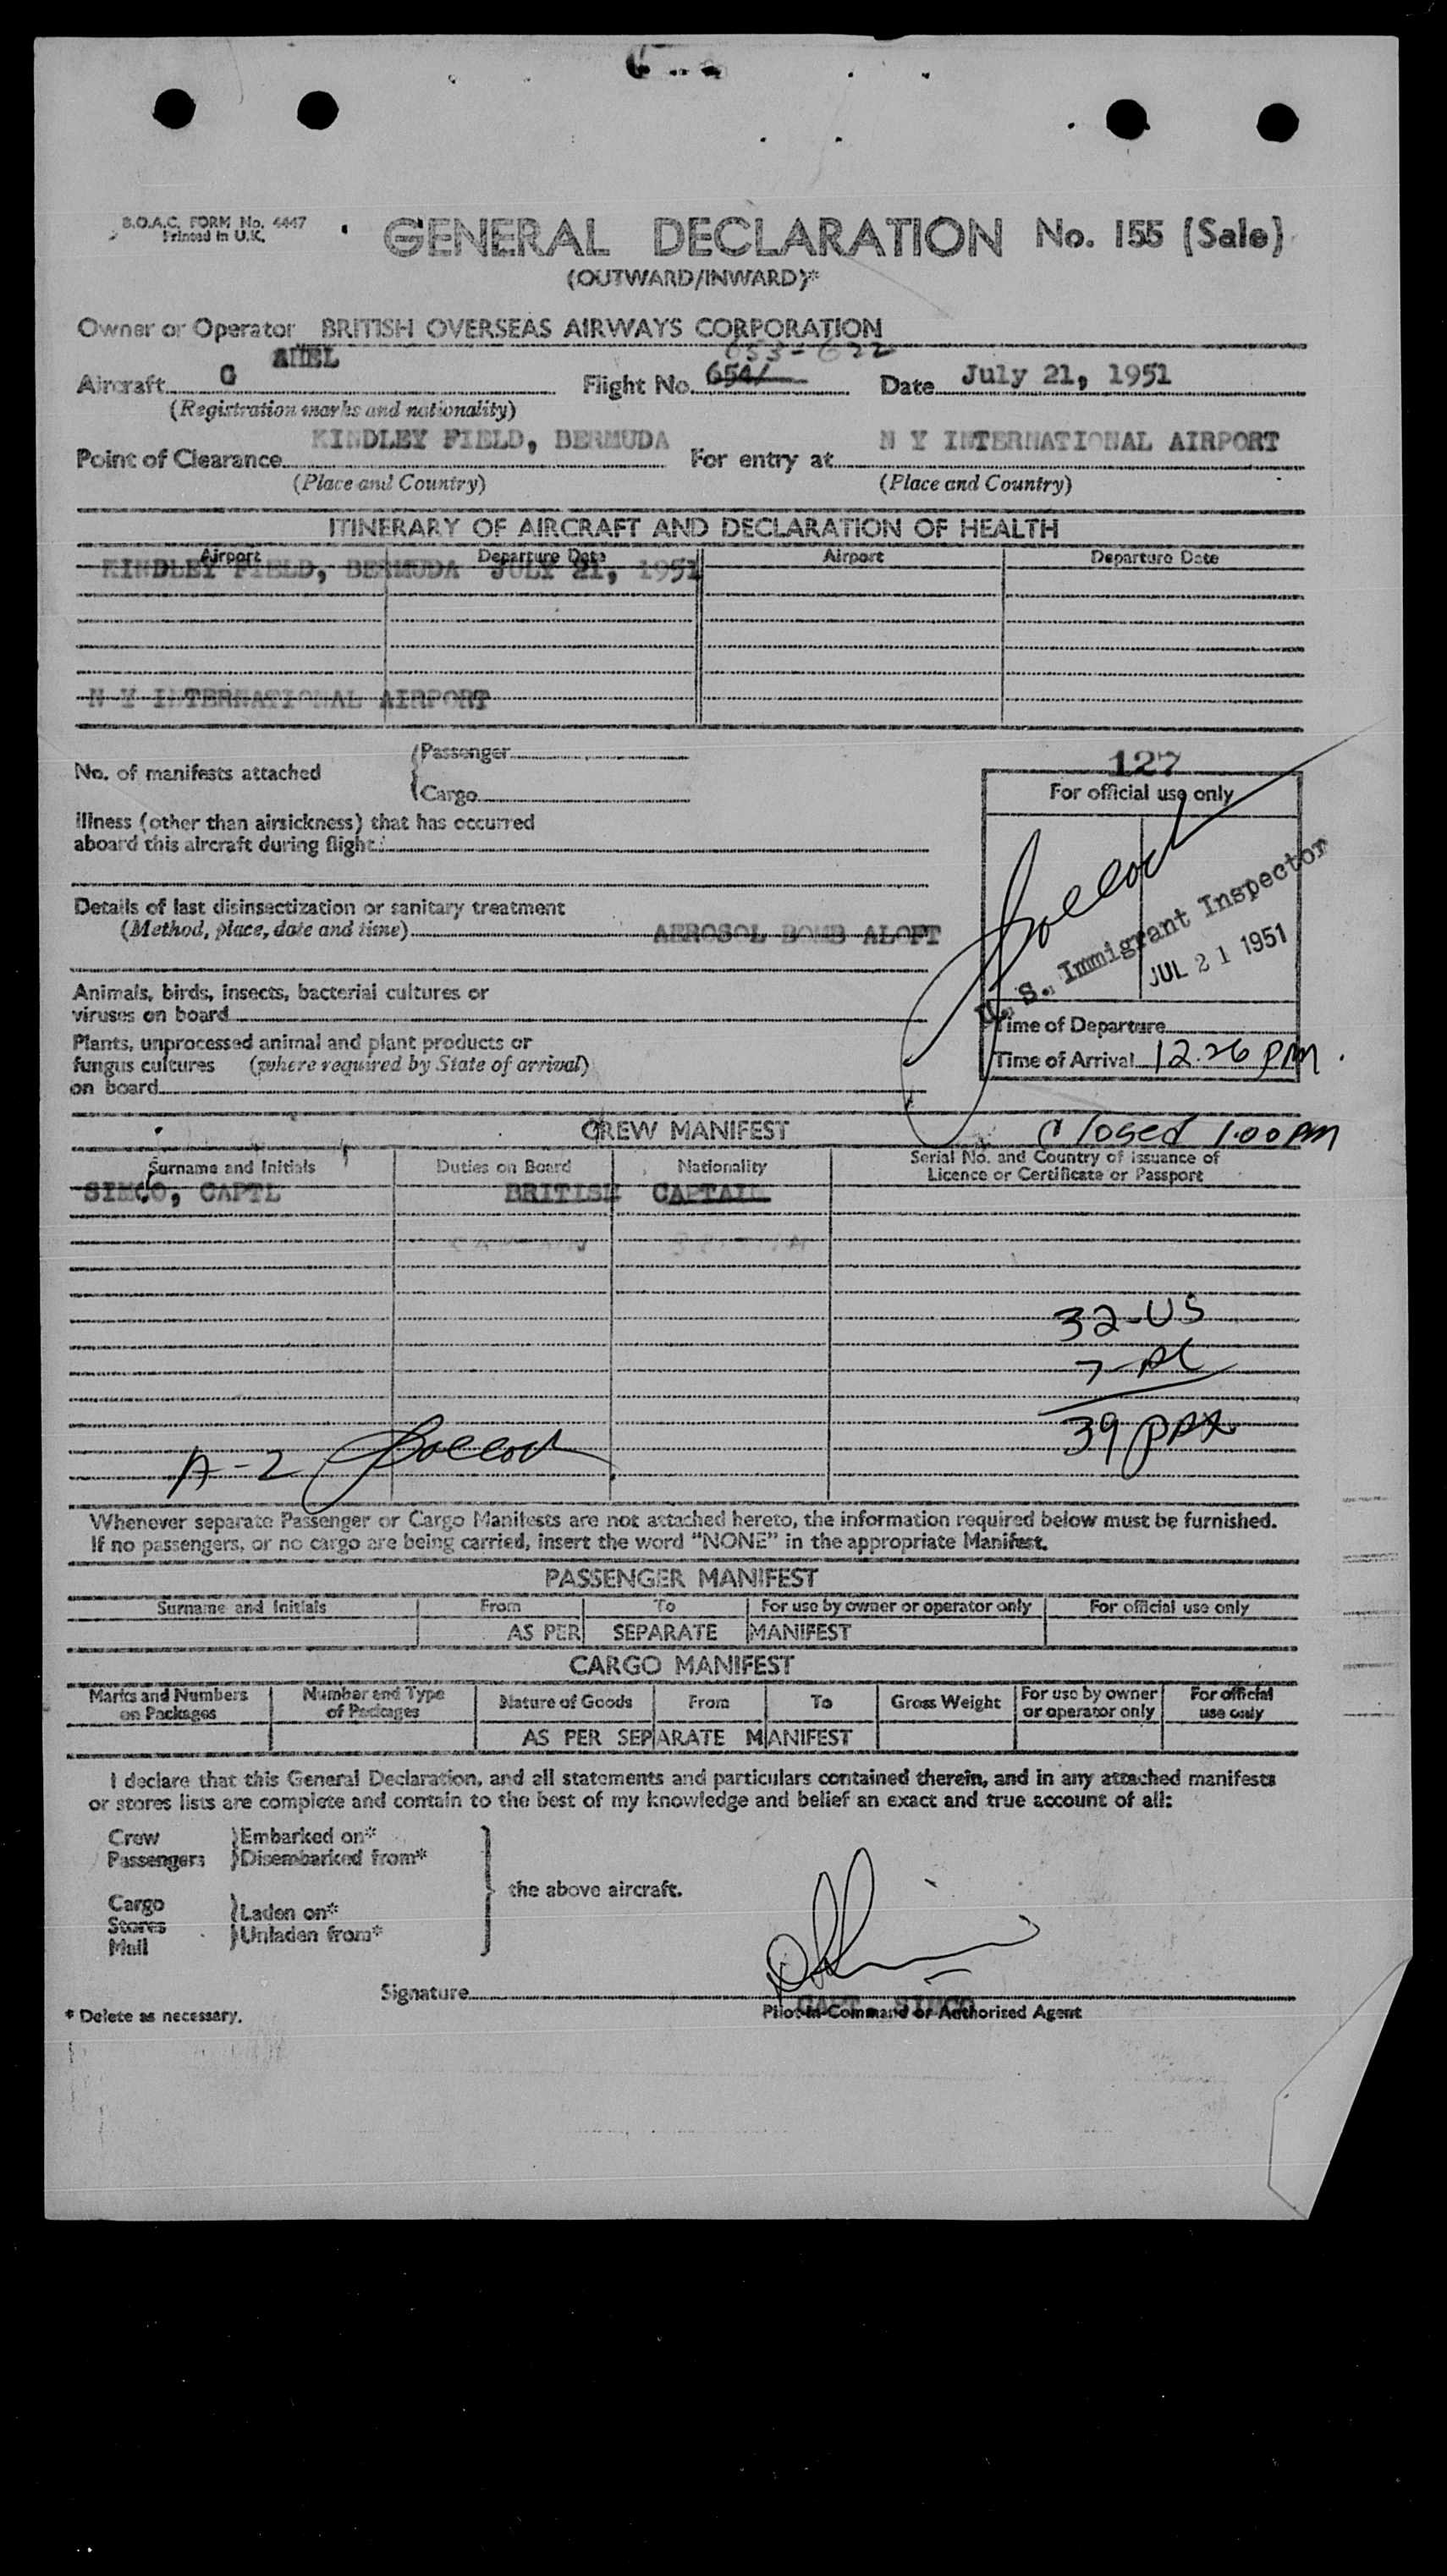 B.O.A.C. FORM No. 4447
Printed in U.K.
GENERAL DECLARATION No. 155 (Sale)
(OUTWARD/INWARD)*
Owner or Operator BRITISH OVERSEAS AIRWAYS CORPORATION
653-622
Aircraft G AHEL Flight No. 654/ Date July 21, 1951
(Registration marks and nationality)
Point of Clearance KINDLEY FIELD, BERMUDA For entry at N Y INTERNATIONAL AIRPORT
(Place and Country) (Place and Country)
ITINERARY OF AIRCRAFT AND DECLARATION OF HEALTH
Airport Departure Date Airport Departure Date
KINDLEY FIELD, BERMUDA JULY 21, 1951
N Y INTERNATIONAL AIRPORT
No. of manifests attached
Passenger
Cargo
127
For official use only
Illness (other than airsickness) that has occurred
aboard this aircraft during flight:
Details of last disinsectization or sanitary treatment
(Method, place, date and time) AEROSOL BOMB ALOFT
U. S. Immigrant Inspector
JUL 21 1951
Animals, birds, insects, bacterial cultures or
viruses on board
Time of Departure
Plants, unprocessed animal and plant products or
fungus cultures (where required by State of arrival)
on board
Time of Arrival 12.26 PM.
Closed 1.00 PM
CREW MANIFEST
Surname and Initials Duties on Board Nationality Serial No. and Country of Issuance of
Licence or Certificate or Passport
SIMCO, CAPTL BRITISH CAPTAIN
32-US
7-
39 pax
A-2
Whenever separate Passenger or Cargo Manifests are not attached hereto, the information required below must be furnished.
If no passengers, or no cargo are being carried, insert the word "NONE" in the appropriate Manifest.
PASSENGER MANIFEST
Surname and Initials From To For use by owner or operator only For official use only
AS PER SEPARATE MANIFEST
CARGO MANIFEST
Marks and Numbers on Packages Number and Type of Packages Nature of Goods From To Gross Weight For use by owner or operator only For official use only
AS PER SEPARATE MANIFEST
I declare that this General Declaration, and all statements and particulars contained therein, and in any attached manifests
or stores lists are complete and contain to the best of my knowledge and belief an exact and true account of all:
Crew Embarked on*
Passengers Disembarked from*
the above aircraft.
Cargo Laden on*
Stores
Mail Unladen from*
Signature
CAPT. SIMCO
Pilot-in-Command or Authorised Agent
* Delete as necessary.